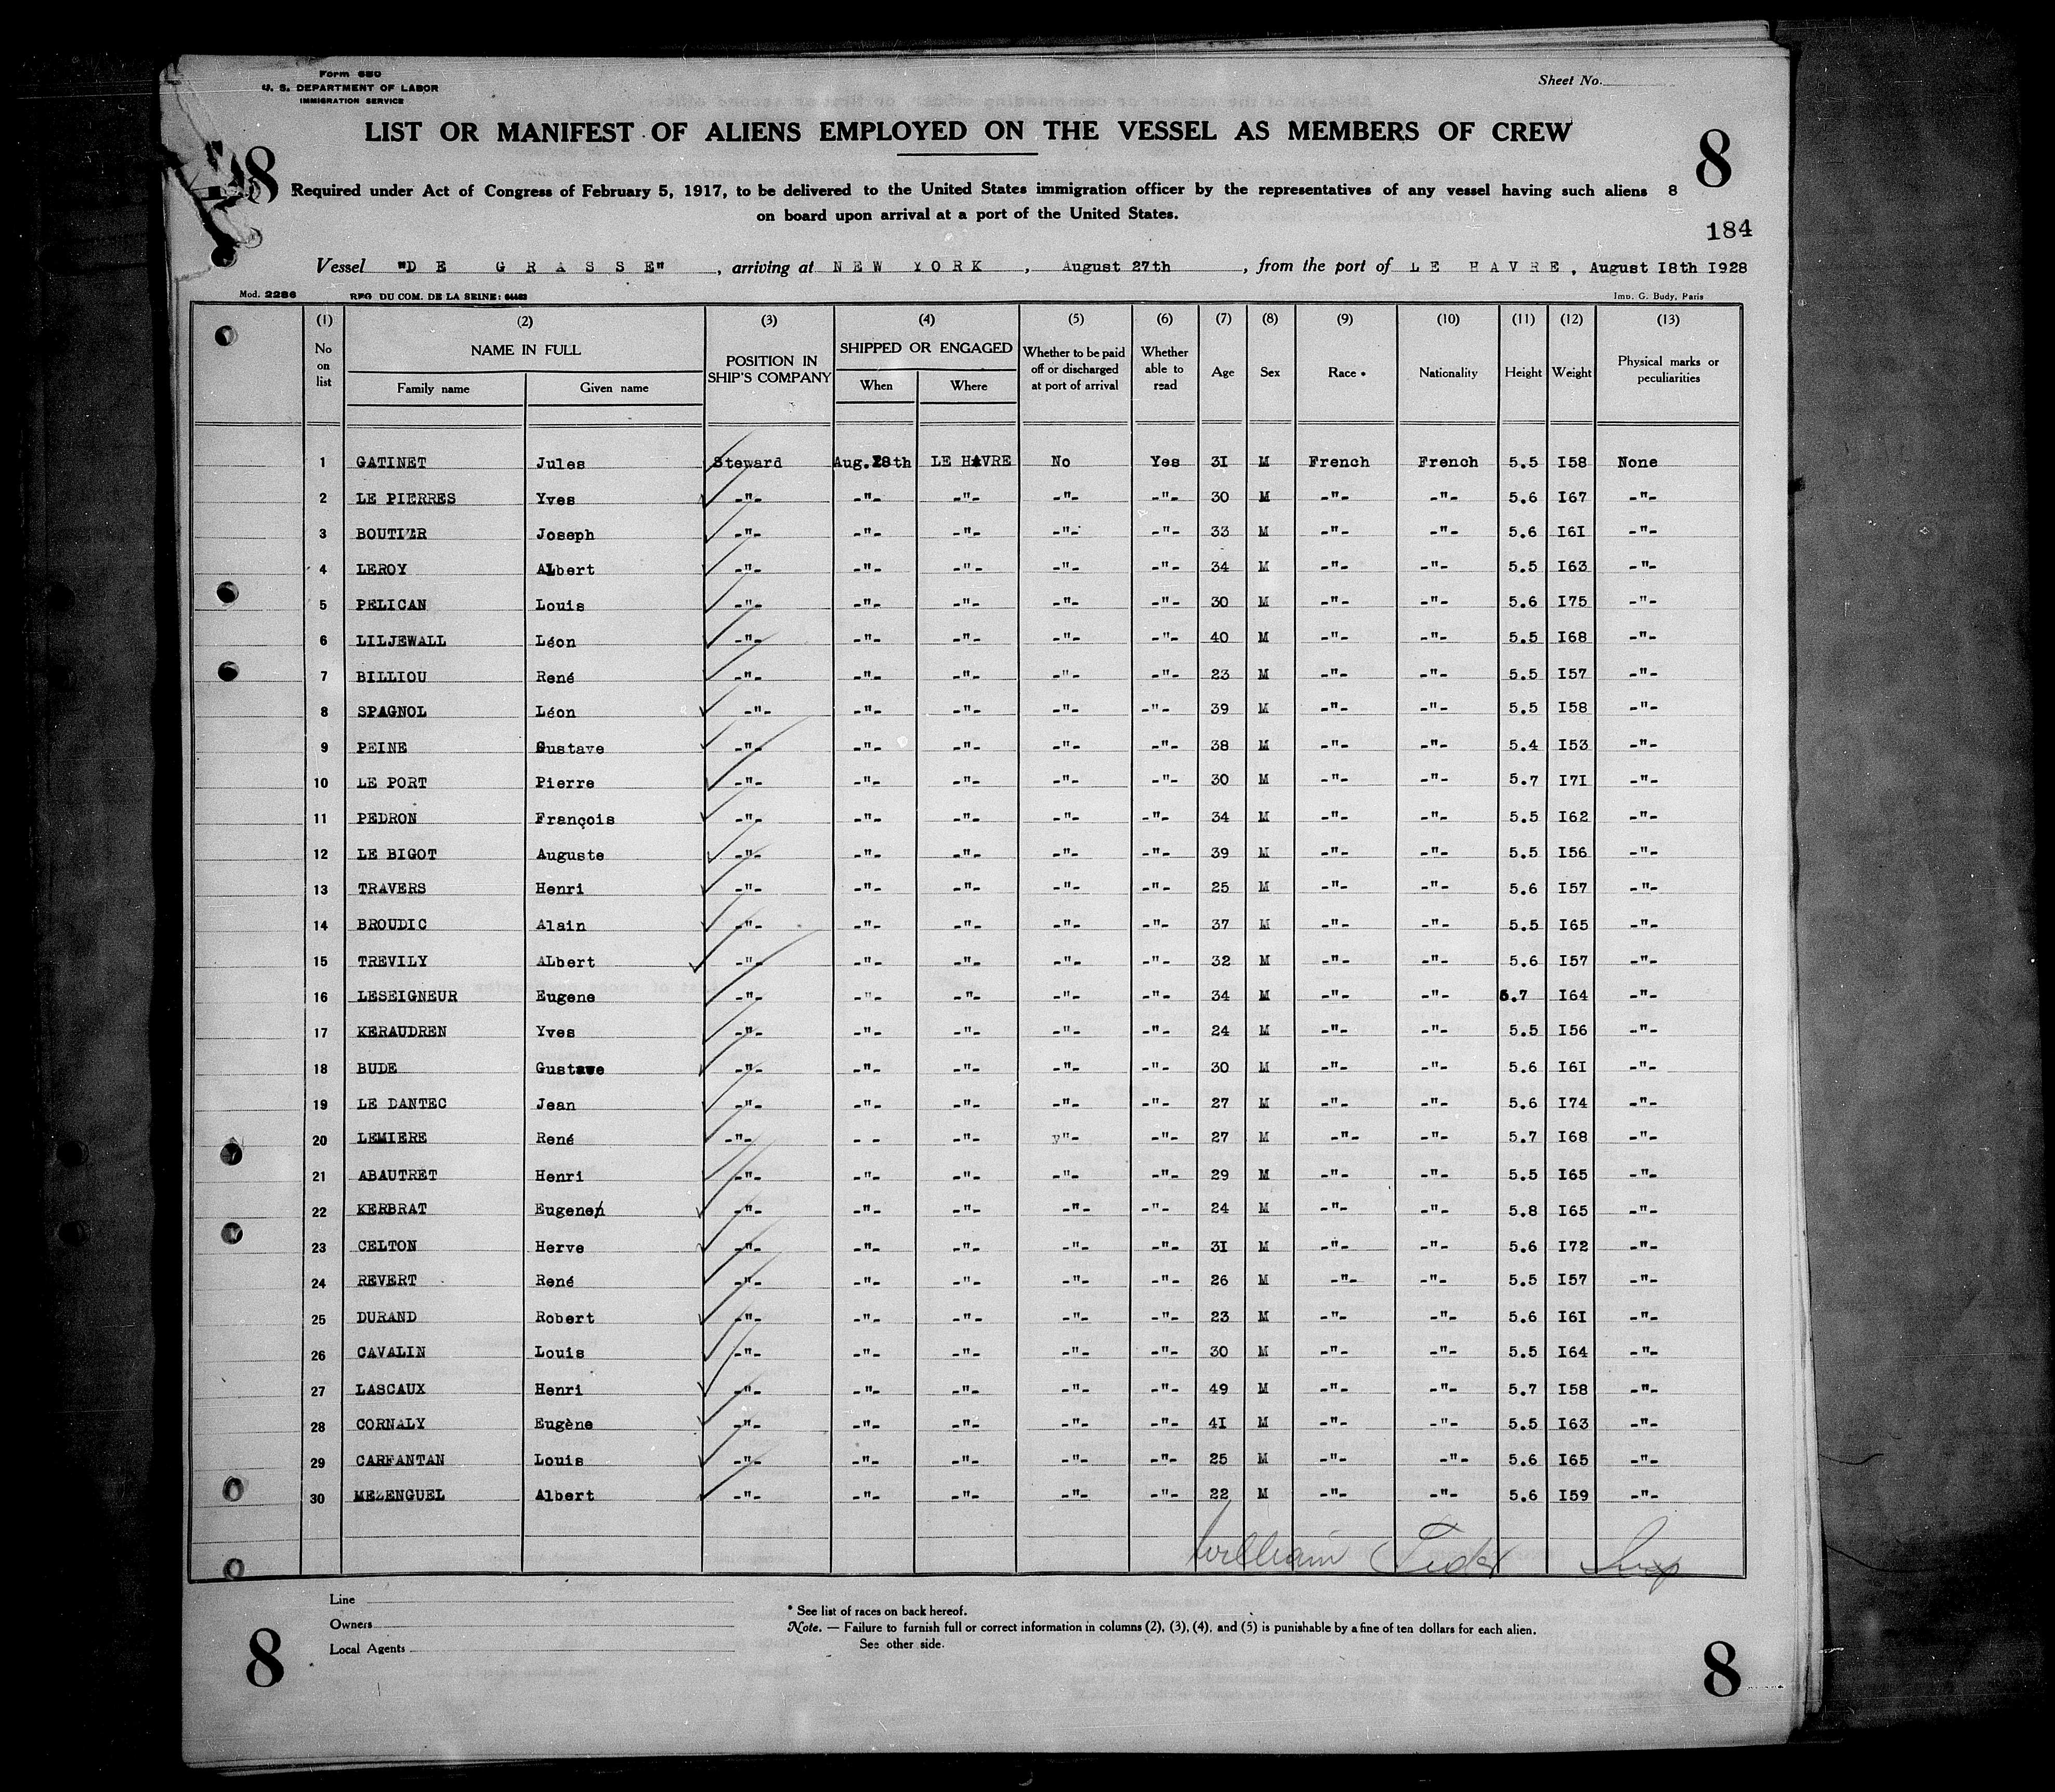 Form 680
U. S. DEPARTMENT OF LABOR
IMMIGRATION SERVICE
Sheet No.
LIST OR MANIFEST OF ALIENS EMPLOYED ON THE VESSEL AS MEMBERS OF CREW
8 8
Required under Act of Congress of February 5, 1917, to be delivered to the United States immigration officer by the representatives of any vessel having such aliens 8
on board upon arrival at a port of the United States.
184
Vessel "DE GRASSE", arriving at NEW YORK, August 27th, from the port of LE HAVRE, August I8th I928
Mod. 2286 REG DU COM. DE LA SEINE: Imp. G. Budy, Paris
(1) (2) (3) (4) (5) (6) (7) (8) (9) (10) (11) (12) (13)
No on list NAME IN FULL Family name Given name POSITION IN SHIP'S COMPANY SHIPPED OR ENGAGED When Where Whether to be paid off or discharged at port of arrival Whether able to read Age Sex Race * Nationality Height Weight Physical marks or peculiarities
1 GATINET Jules Steward Aug. 18th LE HAVRE No Yes 3I M French French 5.5 I58 None
2 LE PIERRES Yves -"- -"- -"- -"- -"- 30 M -"- -"- 5.6 I67 -"-
3 BOUTIER Joseph -"- -"- -"- -"- -"- 33 M -"- -"- 5.6 I6I -"-
4 LEROY ALbert -"- -"- -"- -"- -"- 34 M -"- -"- 5.5 I63 -"-
5 PELICAN Louis -"- -"- -"- -"- -"- 30 M -"- -"- 5.6 I75 -"-
6 LILJEWALL Léon -"- -"- -"- -"- -"- 40 M -"- -"- 5.5 I68 -"-
7 BILLIOU René -"- -"- -"- -"- -"- 23 M -"- -"- 5.5 I57 -"-
8 SPAGNOL Léon -"- -"- -"- -"- -"- 39 M -"- -"- 5.5 I58 -"-
9 PEINE Gustave -"- -"- -"- -"- -"- 38 M -"- -"- 5.4 I53 -"-
10 LE PORT Pierre -"- -"- -"- -"- -"- 30 M -"- -"- 5.7 I7I -"-
11 PEDRON François -"- -"- -"- -"- -"- 34 M -"- -"- 5.5 I62 -"-
12 LE BIGOT Auguste -"- -"- -"- -"- -"- 39 M -"- -"- 5.5 I56 -"-
13 TRAVERS Henri -"- -"- -"- -"- -"- 25 M -"- -"- 5.6 I57 -"-
14 BROUDIC Alain -"- -"- -"- -"- -"- 37 M -"- -"- 5.5 I65 -"-
15 TREVILY ALbert -"- -"- -"- -"- -"- 32 M -"- -"- 5.6 I57 -"-
16 LESEIGNEUR Eugene -"- -"- -"- -"- -"- 34 M -"- -"- 5.7 I64 -"-
17 KERAUDREN Yves -"- -"- -"- -"- -"- 24 M -"- -"- 5.5 I56 -"-
18 BUDE Gustave -"- -"- -"- -"- -"- 30 M -"- -"- 5.6 I6I -"-
19 LE DANTEC Jean -"- -"- -"- -"- -"- 27 M -"- -"- 5.6 I74 -"-
20 LEMIERE René -"- - - -"- y"- -"- 27 M -"- -"- 5.7 I68 -"-
21 ABAUTRET Henri -"- -"- -"- -"- -"- 29 M -"- -"- 5.5 I65 -"-
22 KERBRAT Eugene -"- -"- -"- -"- -"- 24 M -"- -"- 5.8 I65 -"-
23 CELTON Herve -"- -"- -"- -"- -"- 3I M -"- -"- 5.6 I72 -"-
24 REVERT René -"- -"- -"- -"- -"- 26 M -"- -"- 5.5 I57 -"-
25 DURAND Robert -"- -"- -"- -"- -"- 23 M -"- -"- 5.6 I6I -"-
26 CAVALIN Louis -"- -"- -"- -"- -"- 30 M -"- -"- 5.5 I64 -"-
27 LASCAUX Henri -"- -"- -"- -"- -"- 49 M -"- -"- 5.7 I58 -"-
28 CORNALY Eugène -"- -"- -"- -"- -"- 4I M -"- -"- 5.5 I63 -"-
29 CARFANTAN Louis -"- -"- -"- -"- -"- 25 M -"- -"- 5.6 I65 -"-
30 MEZENGUEL Albert -"- -"- -"- -"- -"- 22 M -"- -"- 5.6 I59 -"-
William
Line
Owners
Local Agents
* See list of races on back hereof.
Note. — Failure to furnish full or correct information in columns (2), (3), (4), and (5) is punishable by a fine of ten dollars for each alien.
See other side.
8 8